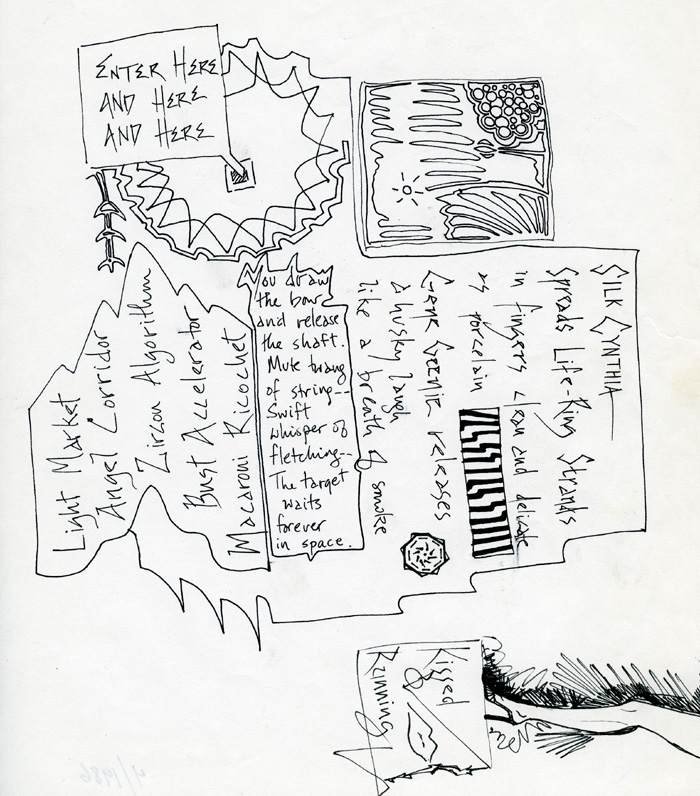 ENTER HERE
AND HERE
AND HERE
SILK CYNTHIA
Spreads Life-Ring Strands
in fingers clean and delicate
as porcelain
releases
A husky laugh
like a breath of smoke
You draw
the bow
and release
the shaft.
Mute twang
of string--
Swift
whisper of
fletching--
The target
waits
forever
in space.
Light Market
Angel Corridor
Zircon Algorithm
Bust Accelerator
Macaroni Ricochet
Kissed
Running
4/1986